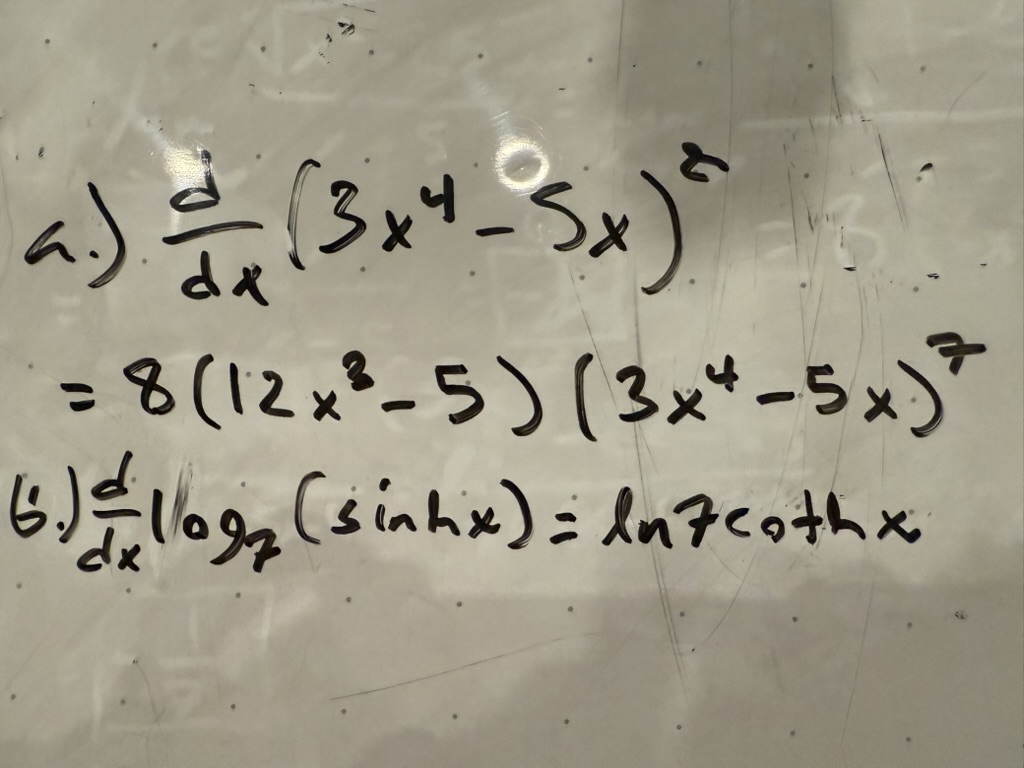 a.) d/dx (3x⁴ - 5x)⁸
= 8(12x³ - 5)(3x⁴ - 5x)⁷
b.) d/dx log₇(sinhx) = ln7cothx